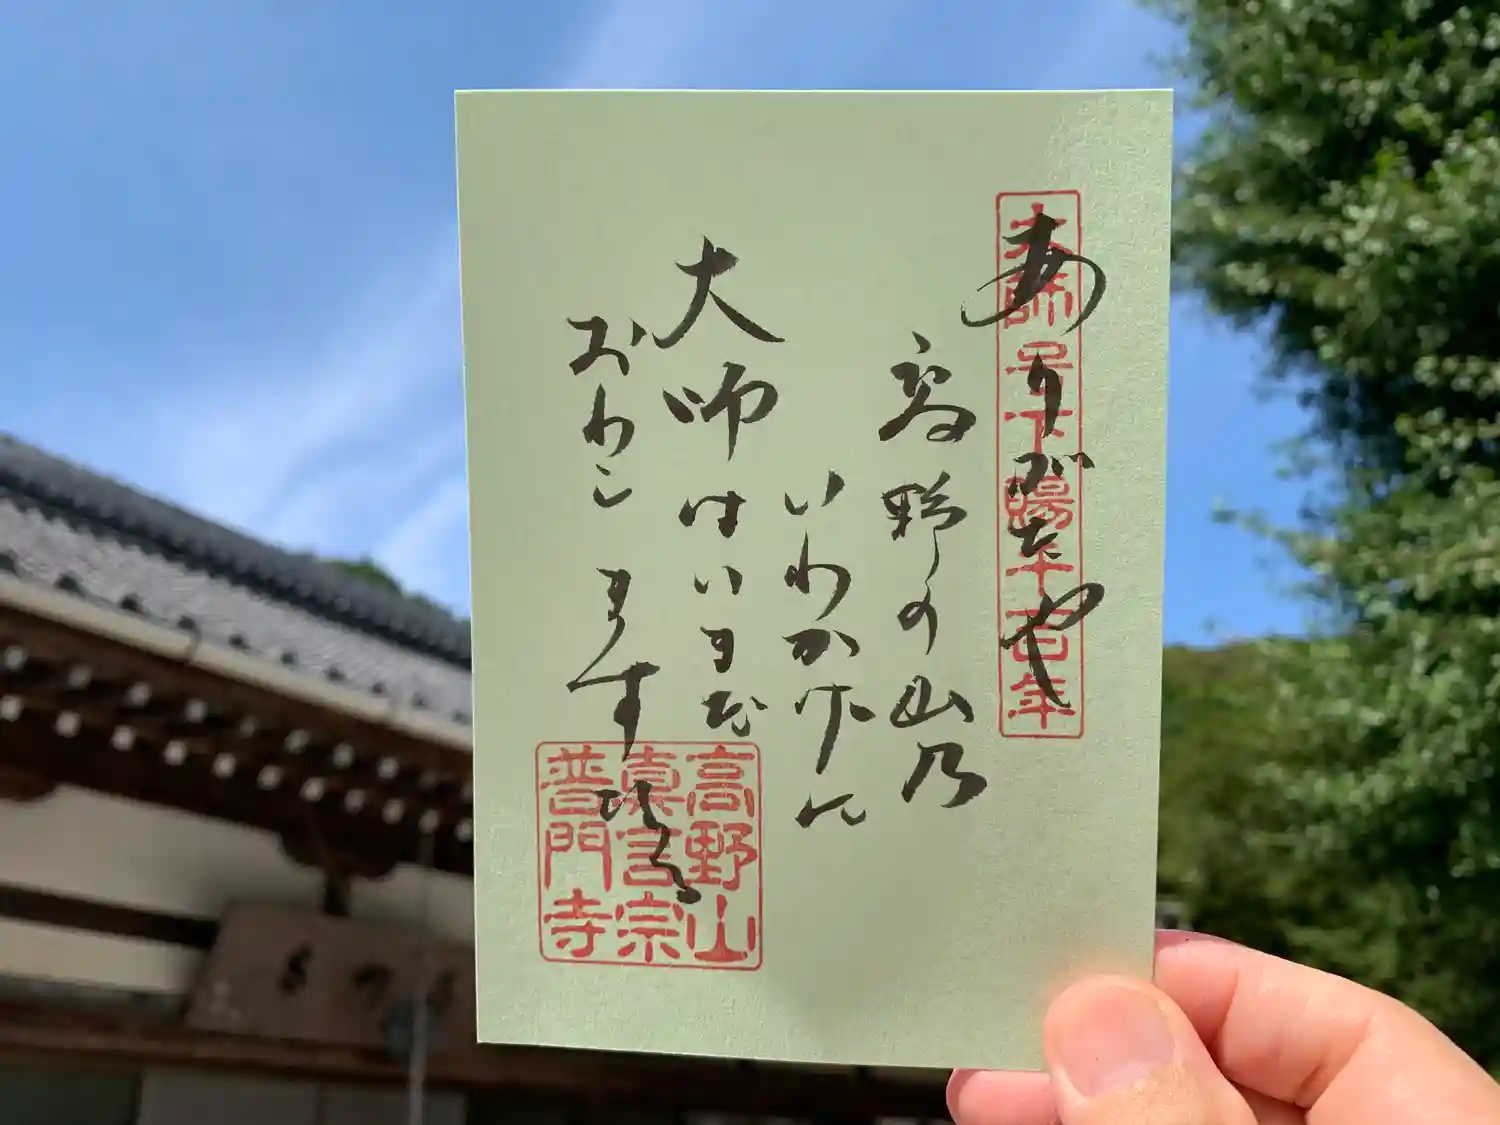 大師号下賜千百年
ありがたや
高野の山乃
いわかげに
大師はいまだ
おわしますなる
高野山
真言宗
普門寺